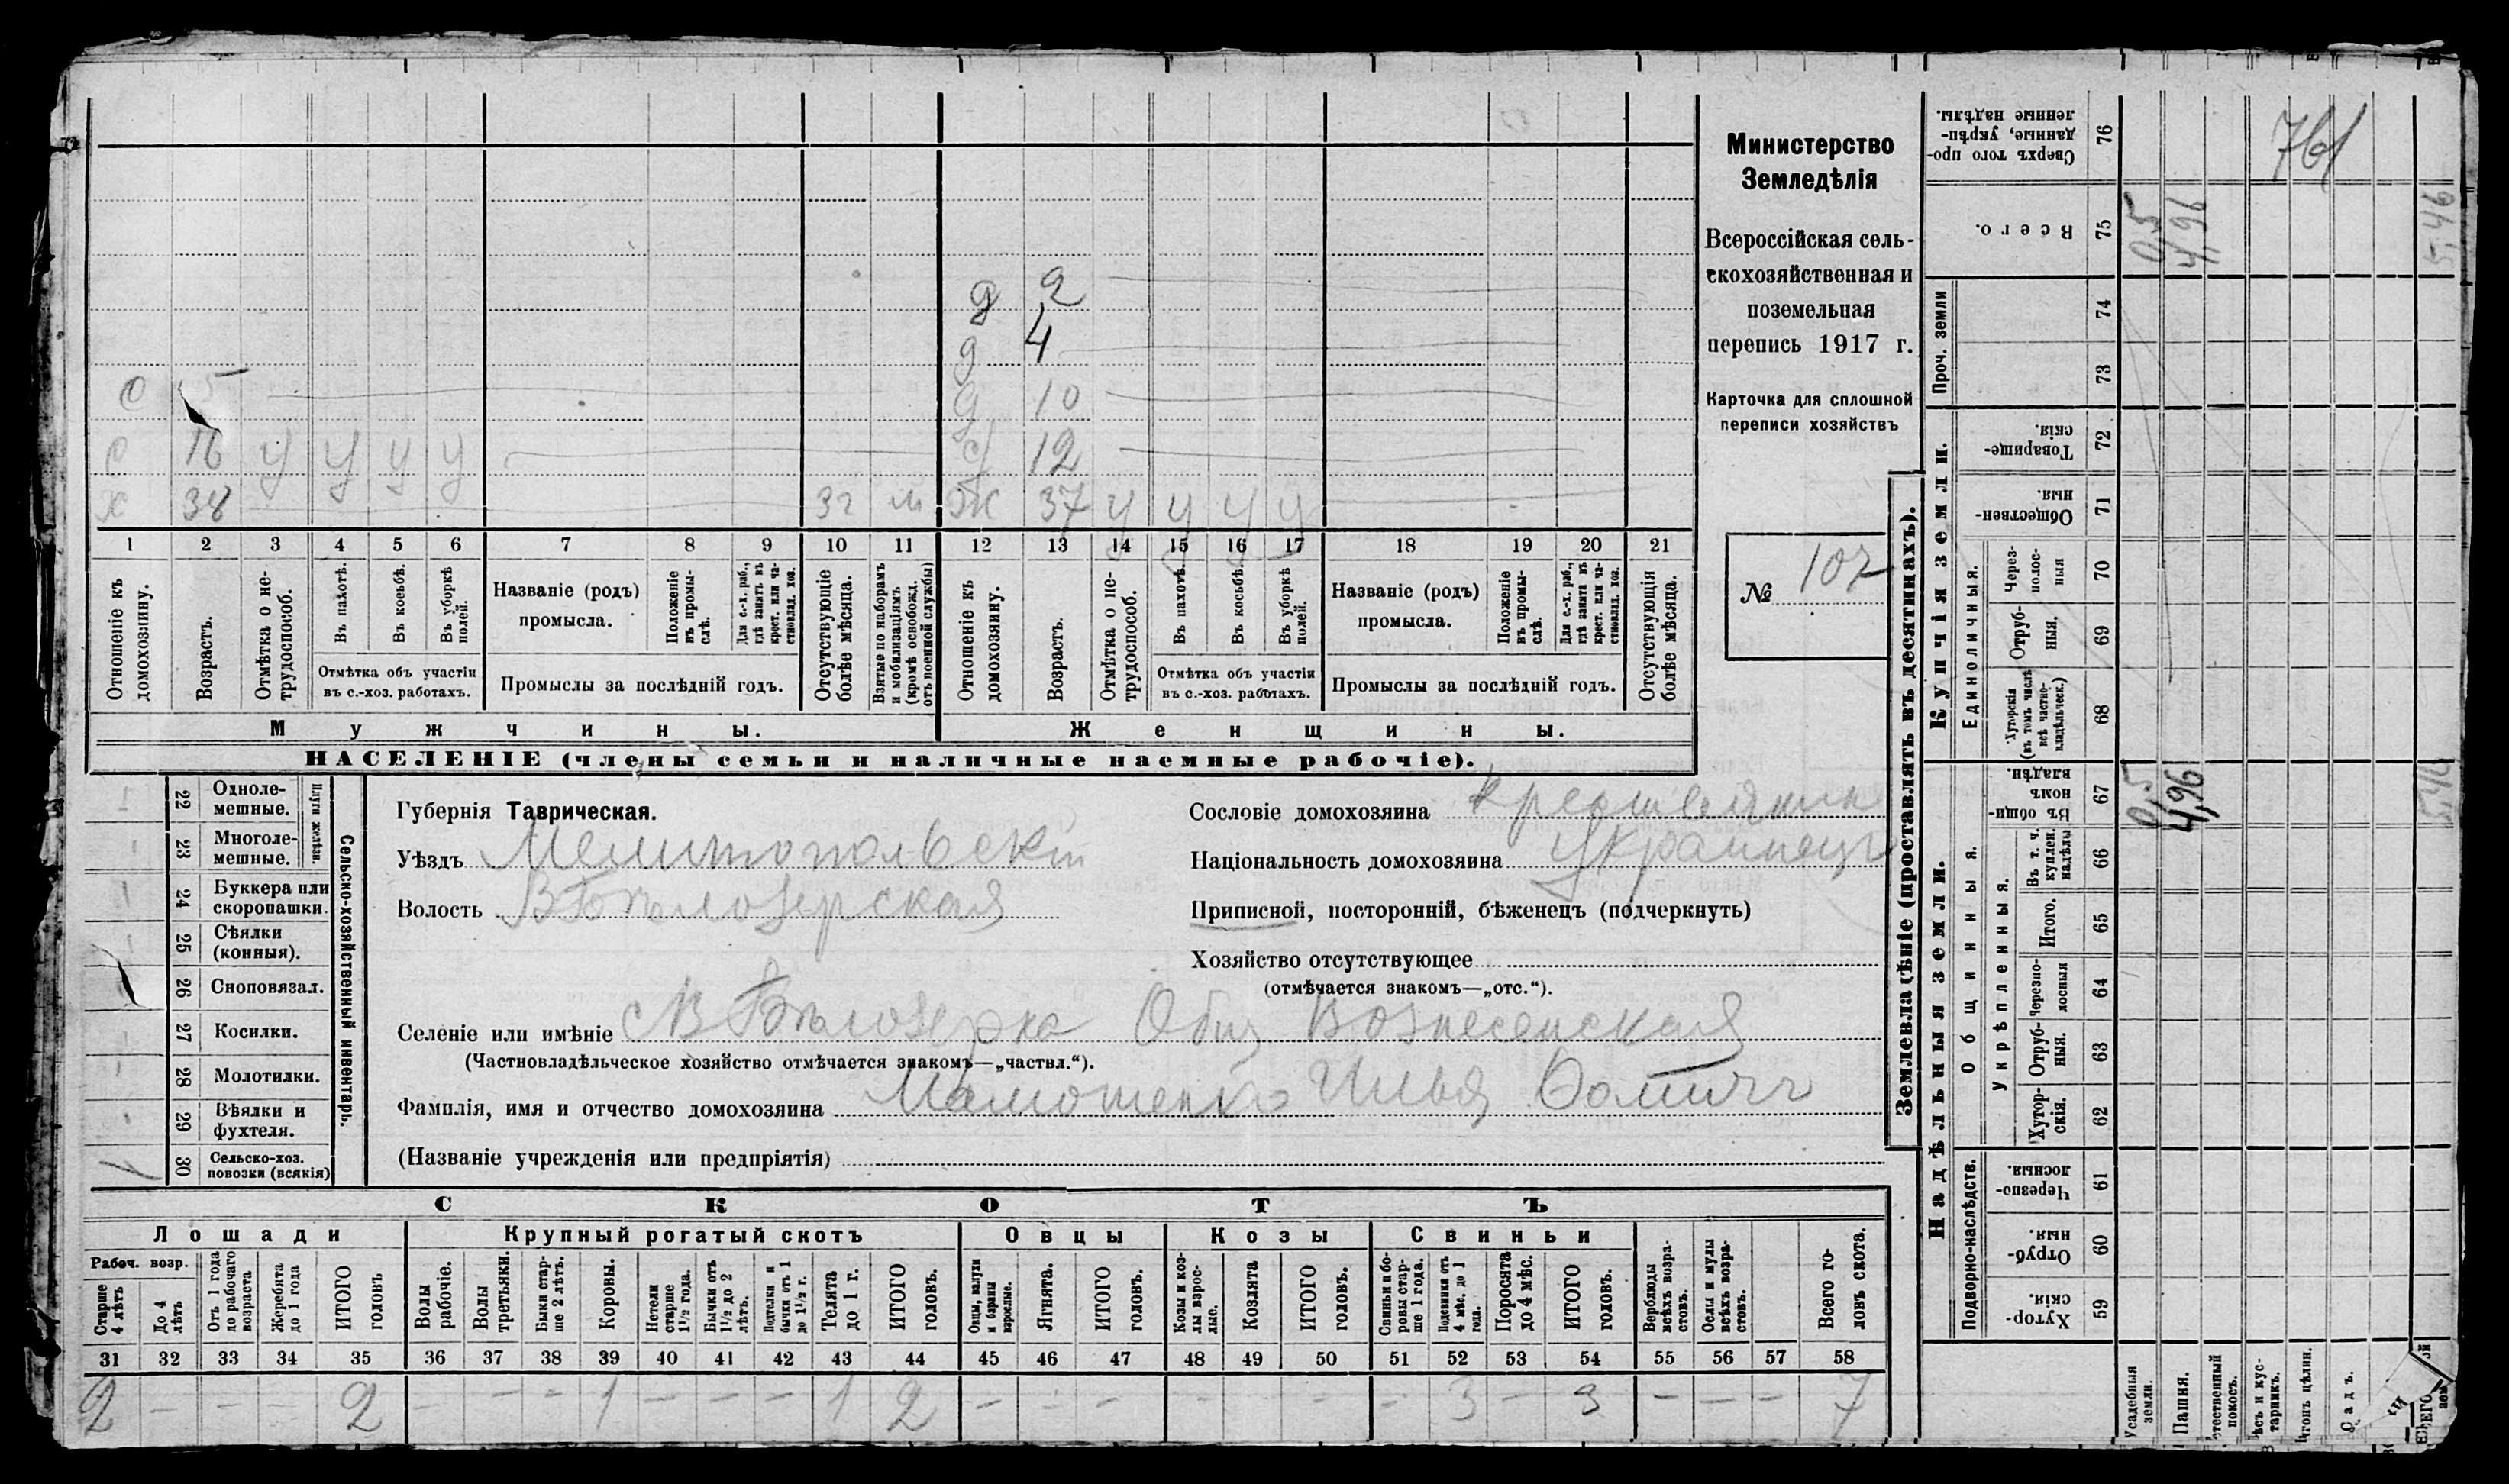 д 2
д 4
с 5
д 10
с 16 у у у у
д 12
х 38 3г м
ж 37 у у у у
1 2 3 4 5 6 7 8 9 10 11 12 13 14 15 16 17 18 19 20 21
Отношеніе къ домохозяину.
Возрастъ.
Отмѣтка о нетрудоспособ.
Въ пахотѣ.
Въ косьбѣ.
Въ уборкѣ полей.
Отмѣтка объ участіи въ с.-хоз. работахъ.
Названіе (родъ) промысла.
Положеніе въ промыслѣ.
Для с.-х. раб., гдѣ занятъ въ крест. или частновлад. хоз.
Промыслы за послѣдній годъ.
Отсутствующіе болѣе мѣсяца.
Взятые по наборамъ и мобилизаціямъ (кромѣ освобожд. отъ военной службы)
Отношеніе къ домохозяину.
Возрастъ.
Отмѣтка о нетрудоспособ.
Въ пахотѣ.
Въ косьбѣ.
Въ уборкѣ полей.
Отмѣтка объ участіи въ с.-хоз. работахъ.
Названіе (родъ) промысла.
Положеніе въ промыслѣ.
Для с.-х. раб., гдѣ занята въ крест. или частновлад. хоз.
Промыслы за послѣдній годъ.
Отсутствующія болѣе мѣсяца.
Мужчины.
Женщины.
НАСЕЛЕНІЕ (члены семьи и наличные наемные рабочіе).
Министерство
Земледѣлія
Всероссійская сель-
скохозяйственная и
поземельная
перепись 1917 г.
Карточка для сплошной
переписи хозяйствъ
№ 107
22 Одноле-мешные.
23 Многоле-мешные.
Плуги желѣзн.
24 Буккера или скоропашки.
25 Сѣялки (конныя).
26 Сноповязал.
27 Косилки.
28 Молотилки.
29 Вѣялки и фухтеля.
30 Сельско-хоз. повозки (всякія)
1
Сельско-хозяйственный инвентарь.
Губернія Таврическая.
Уѣздъ Мелитопольскій
Волость ВБѣлозерская
Сословіе домохозяина крестьянин
Національность домохозяина Украинецъ
Приписной, посторонній, бѣженецъ (подчеркнуть)
Хозяйство отсутствующее
(отмѣчается знакомъ—„отс.“).
Селеніе или имѣніе Бѣлозерка Общ Вознесенская
(Частновладѣльческое хозяйство отмѣчается знакомъ—„частвл.“).
Фамилія, имя и отчество домохозяина Илья
(Названіе учрежденія или предпріятія)
СКОТЪ
Лошади
Крупный рогатый скотъ
Овцы
Козы
Свиньи
Рабоч. возр.
Старше 4 лѣтъ
До 4 лѣтъ
Отъ 1 года до рабочаго возраста
Жеребята до 1 года
ИТОГО головъ
Волы рабочіе.
Волы третьяки.
Быки старше 2 лѣтъ.
Коровы.
Нетели старше 1½ года.
Бычки отъ 1½ до 2 лѣтъ.
Подтелки и бычки отъ 1 до 1½ г.
Телята до 1 г.
ИТОГО головъ.
Овцы, валухи и бараны взрослые.
Ягнята.
ИТОГО головъ.
Козы и козлы взрослые.
Козлята
ИТОГО головъ.
Свиньи и боровы старше 1 года.
Подсвинки отъ 4 мѣс. до 1 года.
Поросята до 4 мѣс.
ИТОГО головъ.
Верблюды всѣхъ возрастовъ.
Ослы и мулы всѣхъ возрастовъ.
Всего головъ скота.
31 32 33 34 35 36 37 38 39 40 41 42 43 44 45 46 47 48 49 50 51 52 53 54 55 56 57 58
2 — — — 2 — — — 1 — — — 1 2 — — — — — — — 3 — 3 — — — 7
Землевладѣніе (проставлять въ десятинахъ).
Надѣльныя земли.
Купчія земли.
Проч. земли
Подворно-наслѣдств.
Общинныя.
Укрѣпленныя.
Единоличныя.
Сверхъ того проданные, укрѣпленные надѣлы. 76
Всего. 75
74
73
Товарищескія. 72
Общественныя. 71
Черезполосныя 70
Отрубныя. 69
Хуторскія (въ томъ числѣ всѣ частновладѣльческ.) 68
Въ общиномъ владѣн. 67
Въ т. ч. куплен. надѣлы 66
Итого. 65
Черезполосныя 64
Отрубныя. 63
Хуторскія. 62
Черезполосныя. 61
Отрубныя. 60
Хуторскія. 59
761
0,5
4,96
5,46
0,5
4,96
5,46
Усадебныя земли.
Пашня.
Садъ.